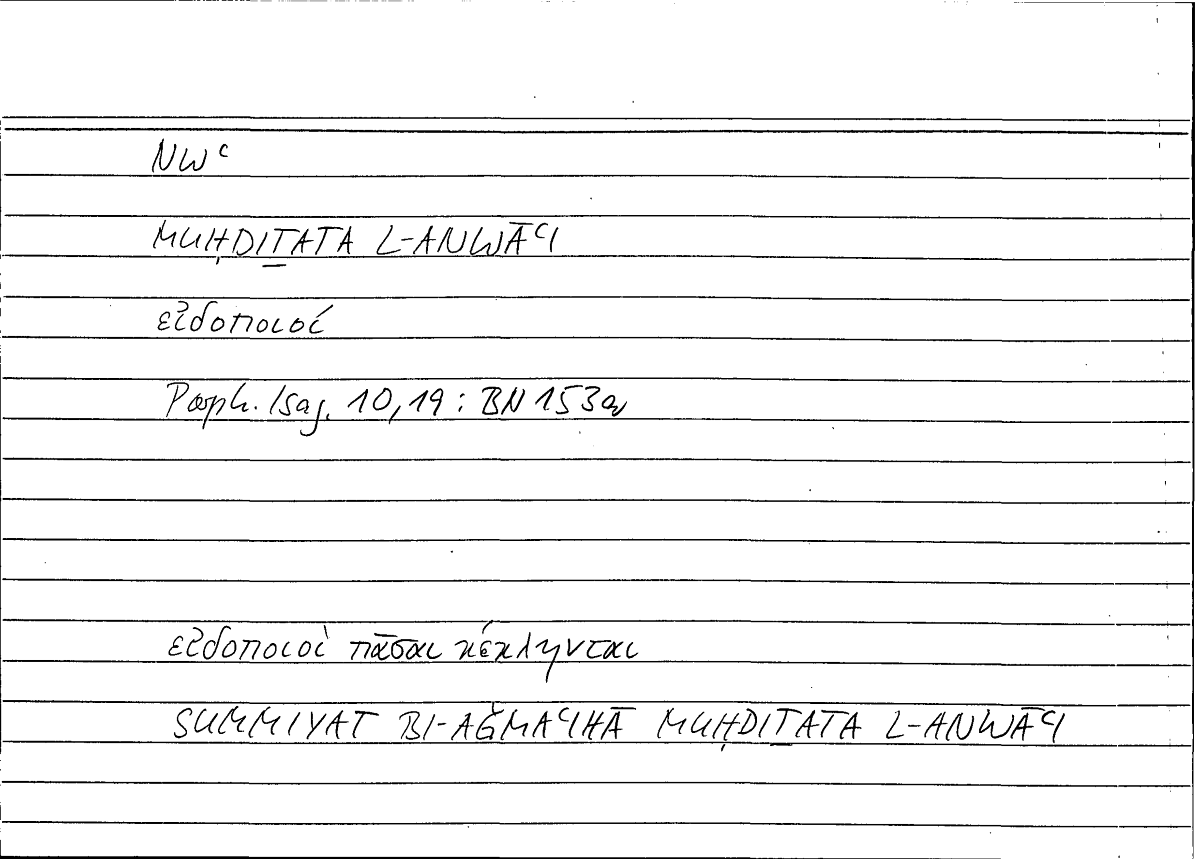 NWʿ
MUḤDIṮATA L-ANWĀʿI
εἰδοποιοί
Porph. Isag. 10,19 : BN 153a
εἰδοποιοὶ πᾶσαι κέκληνται
SUMMIYAT BI-AǦMAʿIHĀ MUḤDIṮATA L-ANWĀʿI